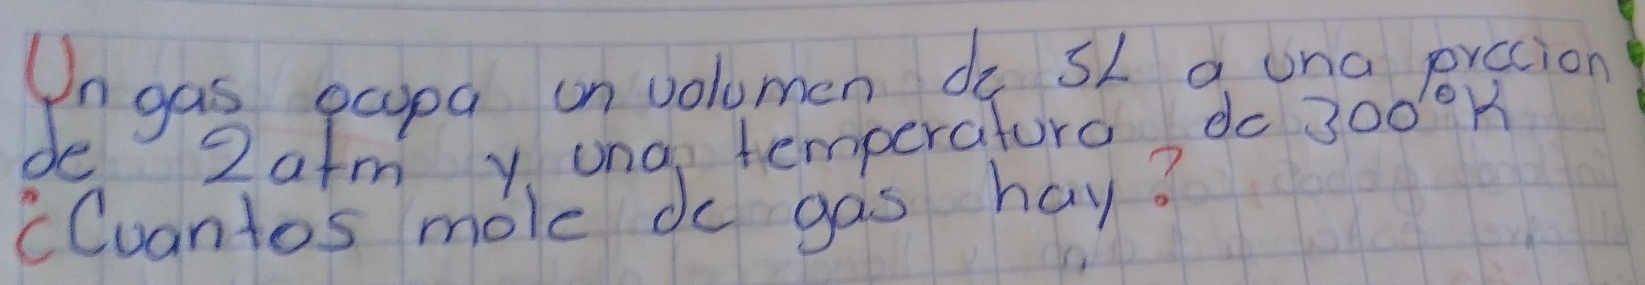 Un gas ocupa un volumen de 5L a una precion
de 2atm y una temperatura de 300°K
¿Cuantos mole de gas hay?